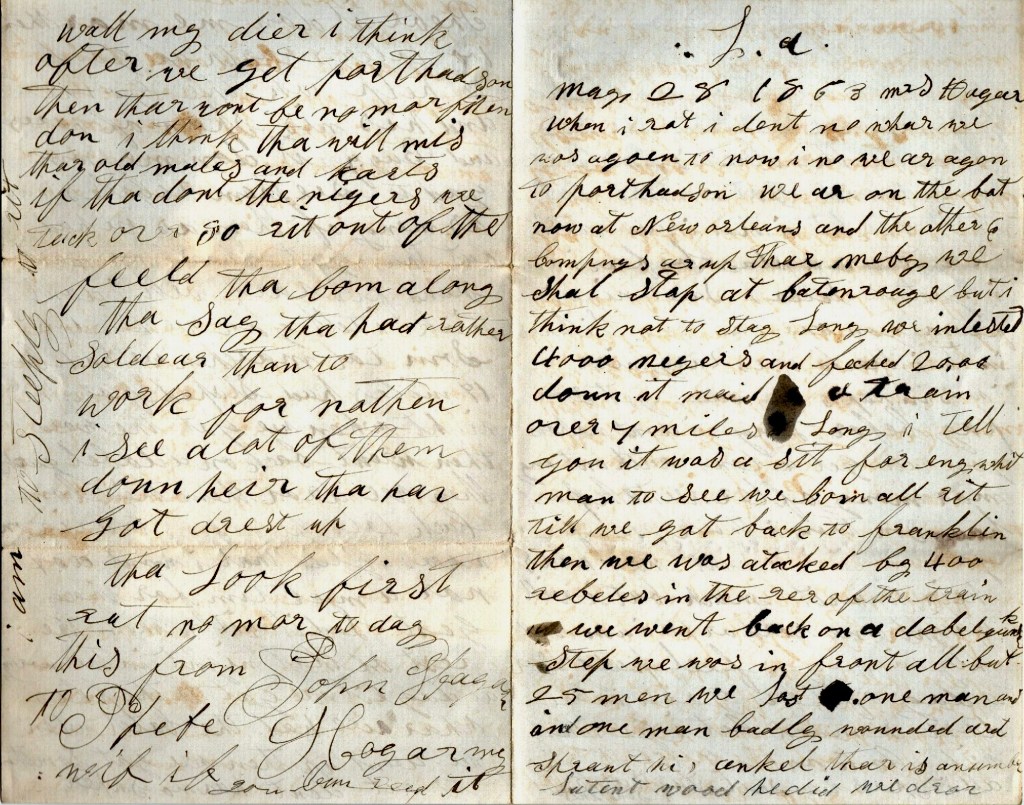 L.a.
may 28 1863 mrs Hogar
When i rot i dent no whar we
was agoen to now i no we ar agon
to porthadson we ar on the bot
now at New orleans and the other 6
Compnys ar up thar meby we
Shal stop at batenrouge but i
think not to stay Long we inlested
4000 negers and feched 2000
down it maid a train
over 7 miles Long i tell
you it was a sit for eny whit
man to see we Com all rit
till we got back to franklin
then we was atacked by 400
rebeles in the rer of the train
we went back on a dobel quick
step we was in front all but
25 men we Lost one man and
one man badly wounded and
Sprant his ankel thar is a
Lutent wood he did
wall my dier i think
ofter we get porthadson
then thar wont be no mor fiten
don i think tha will mis
thar old males and karts
if tha dont the nigers we
tuck or i go rit out of the
feeld tha Com along
tha say tha had rather
Soldear than to
work for nathen
i see a lot of them
down heir tha har
got drest up
tha Look first
rat no mor to day
this from John Hogar
To Phebe Hogar my
wif if you Can reed it
i am to Sleeply to rot